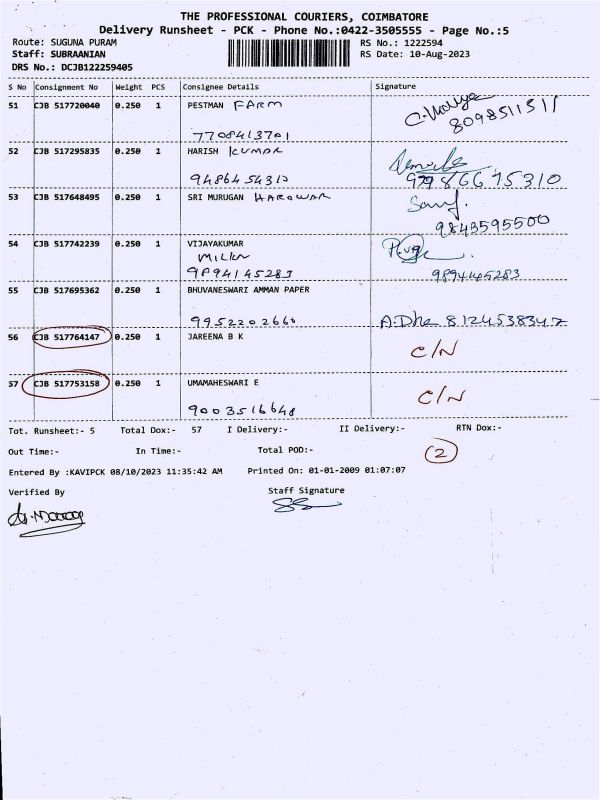 THE PROFESSIONAL COURIERS, COIMBATORE
Delivery Runsheet - PCK - Phone No.:0422-3505555 - Page No.:5
Route: SUGUNA PURAM RS No.: 1222594
Staff: SUBRAANIAN RS Date: 10-Aug-2023
DRS No.: DCJB122259405
S No Consignment No Weight PCS Consignee Details Signature
51 CJB 517720040 0.250 1 PESTMAN FARM
7708413701 8098511511
52 CJB 517295835 0.250 1 HARISH KUMAR
9486454313 97986675310
53 CJB 517648495 0.250 1 SRI MURUGAN HARDWAR
9843595500
54 CJB 517742239 0.250 1 VIJAYAKUMAR
9894145283 9894145283
55 CJB 517695362 0.250 1 BHUVANESWARI AMMAN PAPER
9952202660 A.Dha 8124538347
56 CJB 517764147 0.250 1 JAREENA B K C/N
57 CJB 517753158 0.250 1 UMAMAHESWARI E C/N
9003516648
Tot. Runsheet:- 5 Total Dox:- 57 I Delivery:- II Delivery:- RTN Dox:-
Out Time:- In Time:- Total POD:- 2
Entered By :KAVIPCK 08/10/2023 11:35:42 AM Printed On: 01-01-2009 01:07:07
Verified By Staff Signature